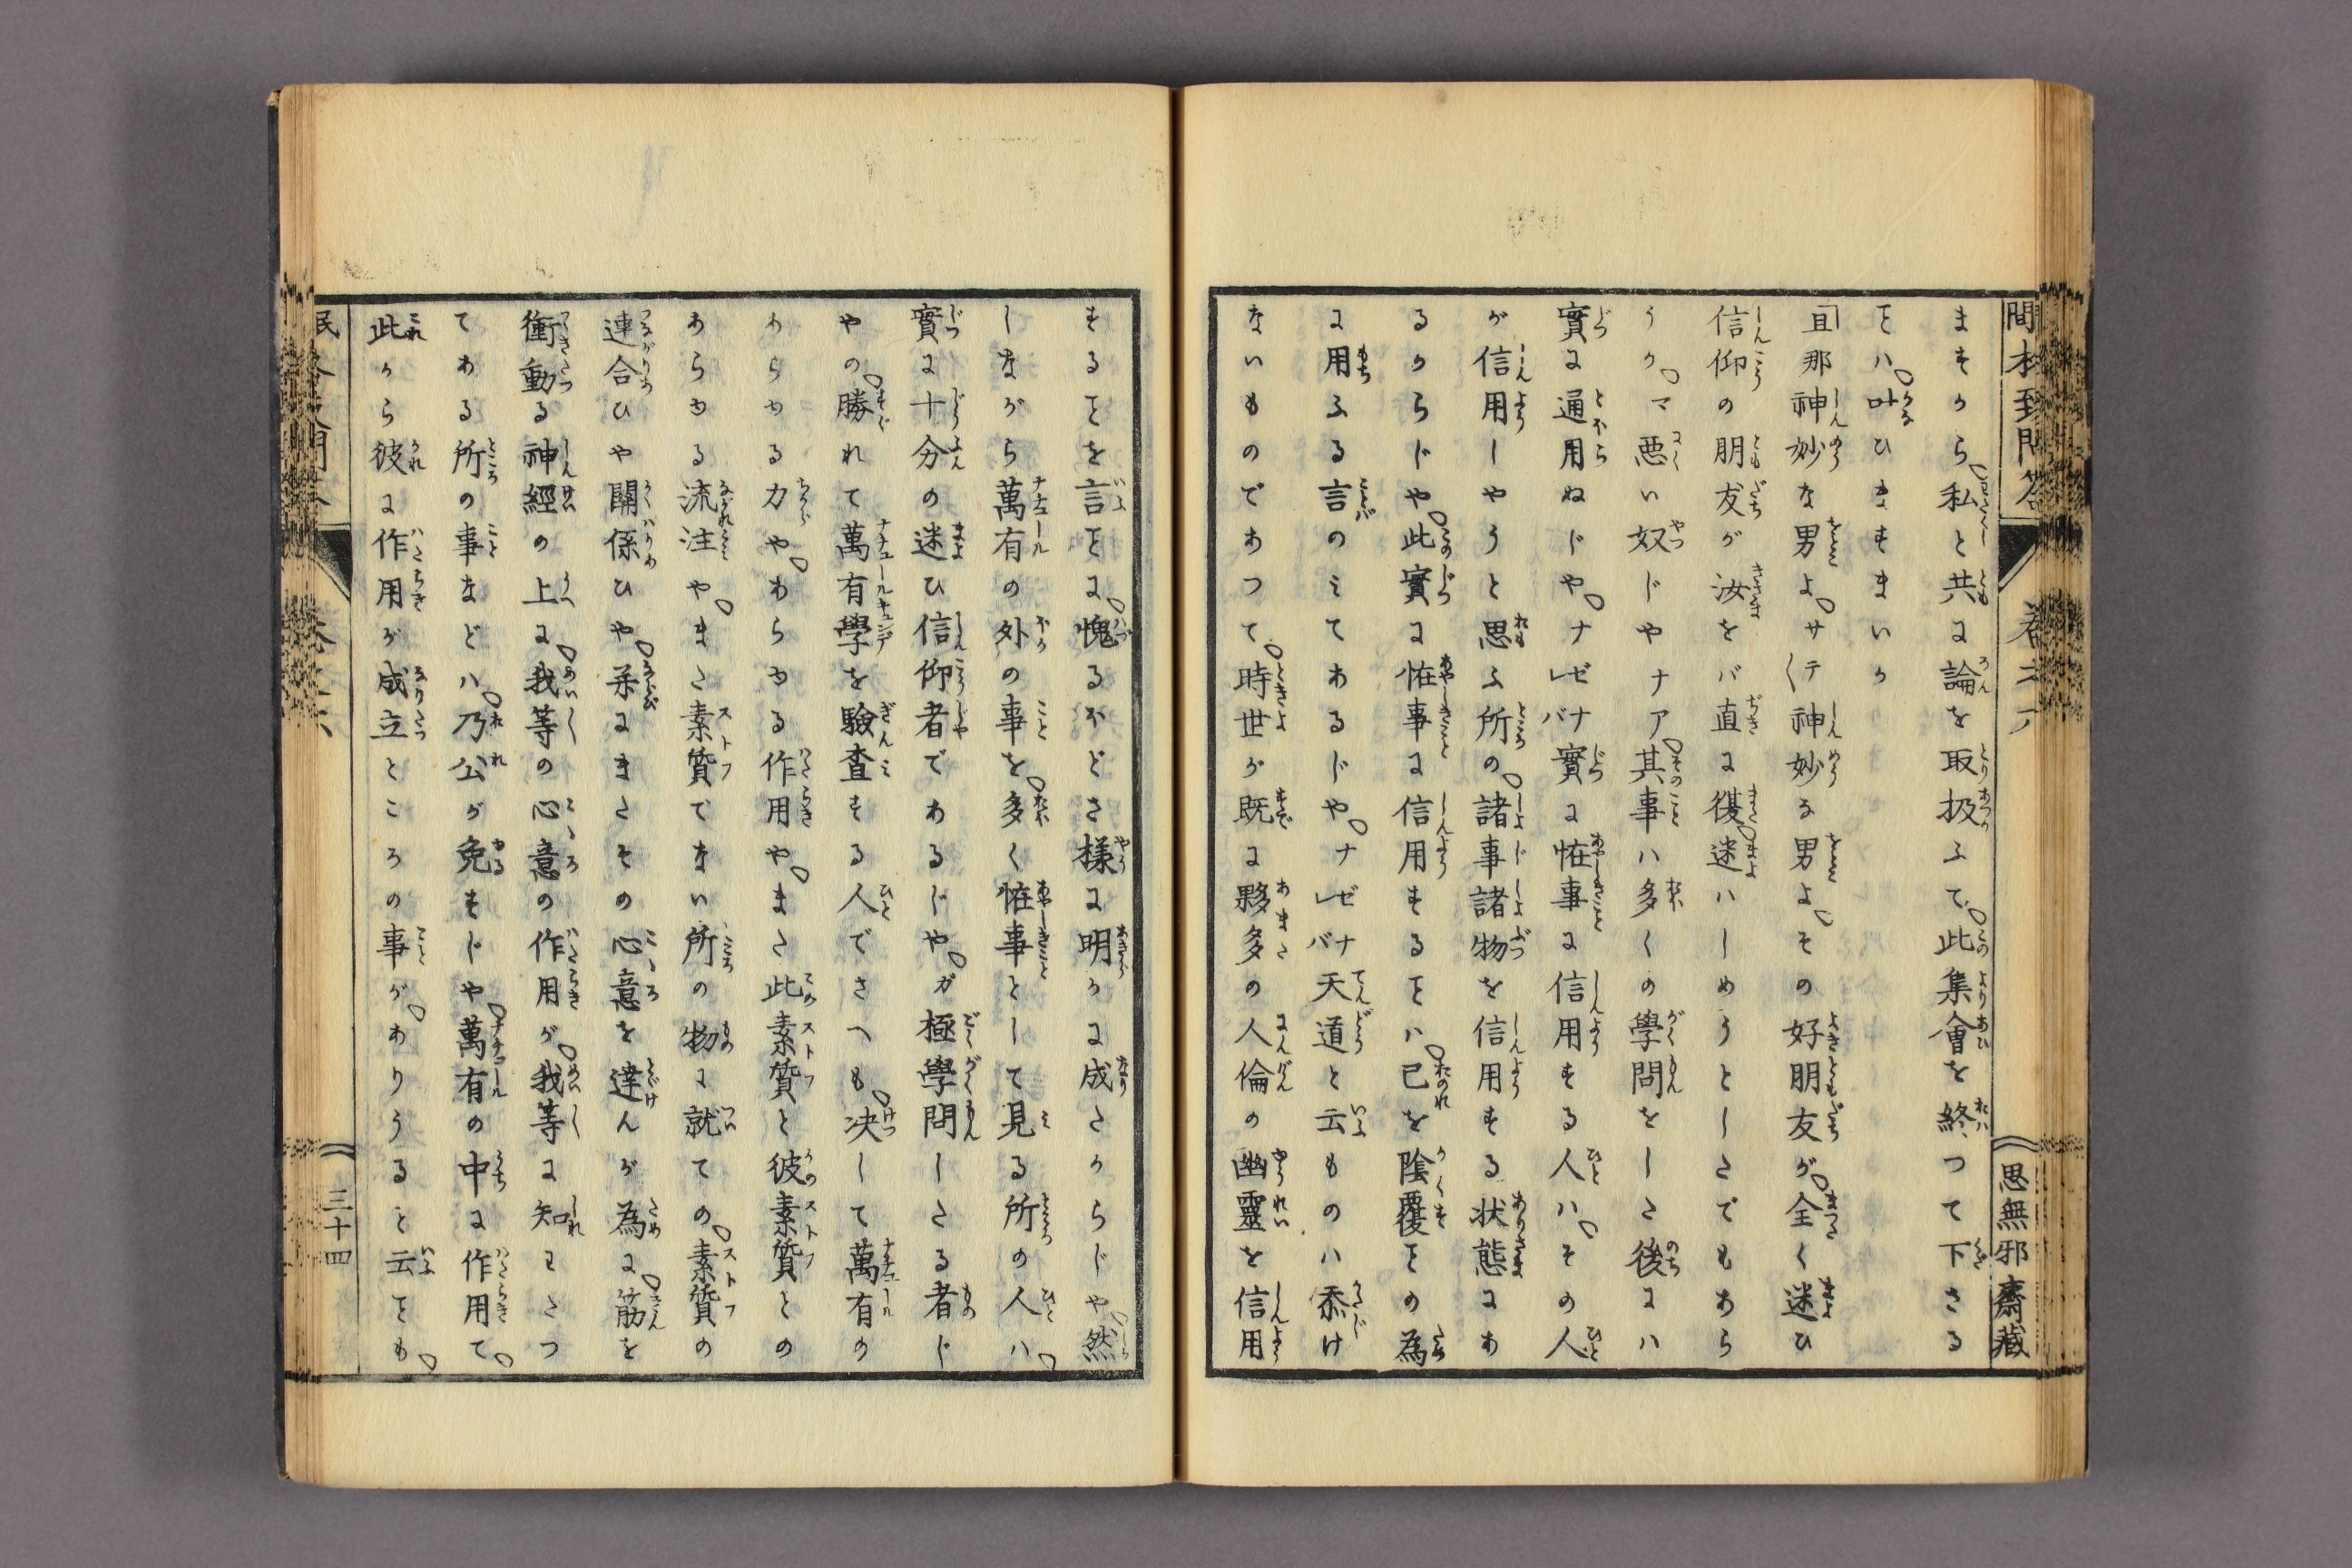 ますから私と共に論を取扱ふて此集會を終つて下さる
ことハ叶ひますまいか
「且那神妙な男よサテ〳〵神妙な男よその好朋友が全く迷ひ
信仰の朋友が汝をバ直に復迷ハしめうとしたでもあら
うかマ悪い奴じやナア其事ハ多くの學問をした後にハ
實に通用ぬじやナゼナレバ實に怪事に信用する人ハその人
が信用しやうと思ふ所の諸事諸物を信用する状態にあ
るからじや此實に怪事に信用することハ己を陰覆ことの為
に用ふる言のみてあるじやナゼナレバ天道と云ものハ忝け
ないものであつて時世が既に夥多の人倫の幽靈を信用
することを言ことに愧るほどさ様に明かに成たからじや然
しながら萬有の外の事を多く怪事として見る所の人ハ
實に十分の迷ひ信仰者であるじやガ極學問したる者じ
やの勝れて萬有學を驗査する人でさへも决して萬有の
あらゆる力やあらゆる作用やまた此素質と彼素質との
あらゆる流注やまた素質でない所の物に就ての素質の
連合ひや關係ひや并にまたその心意を達んが為に筋を
衝動る神經の上に我等の心意の作用が我等に知れさつ
てある所の事などハ乃公が免すじや萬有の中に作用て
此から彼に作用が成立ところの事がありうると云ことも
思無邪齋藏
三十四